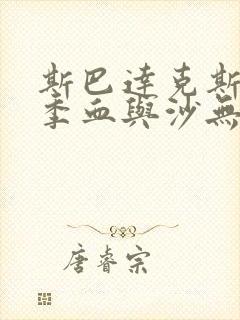 斯巴達克斯
季血與沙無
唐睿宗